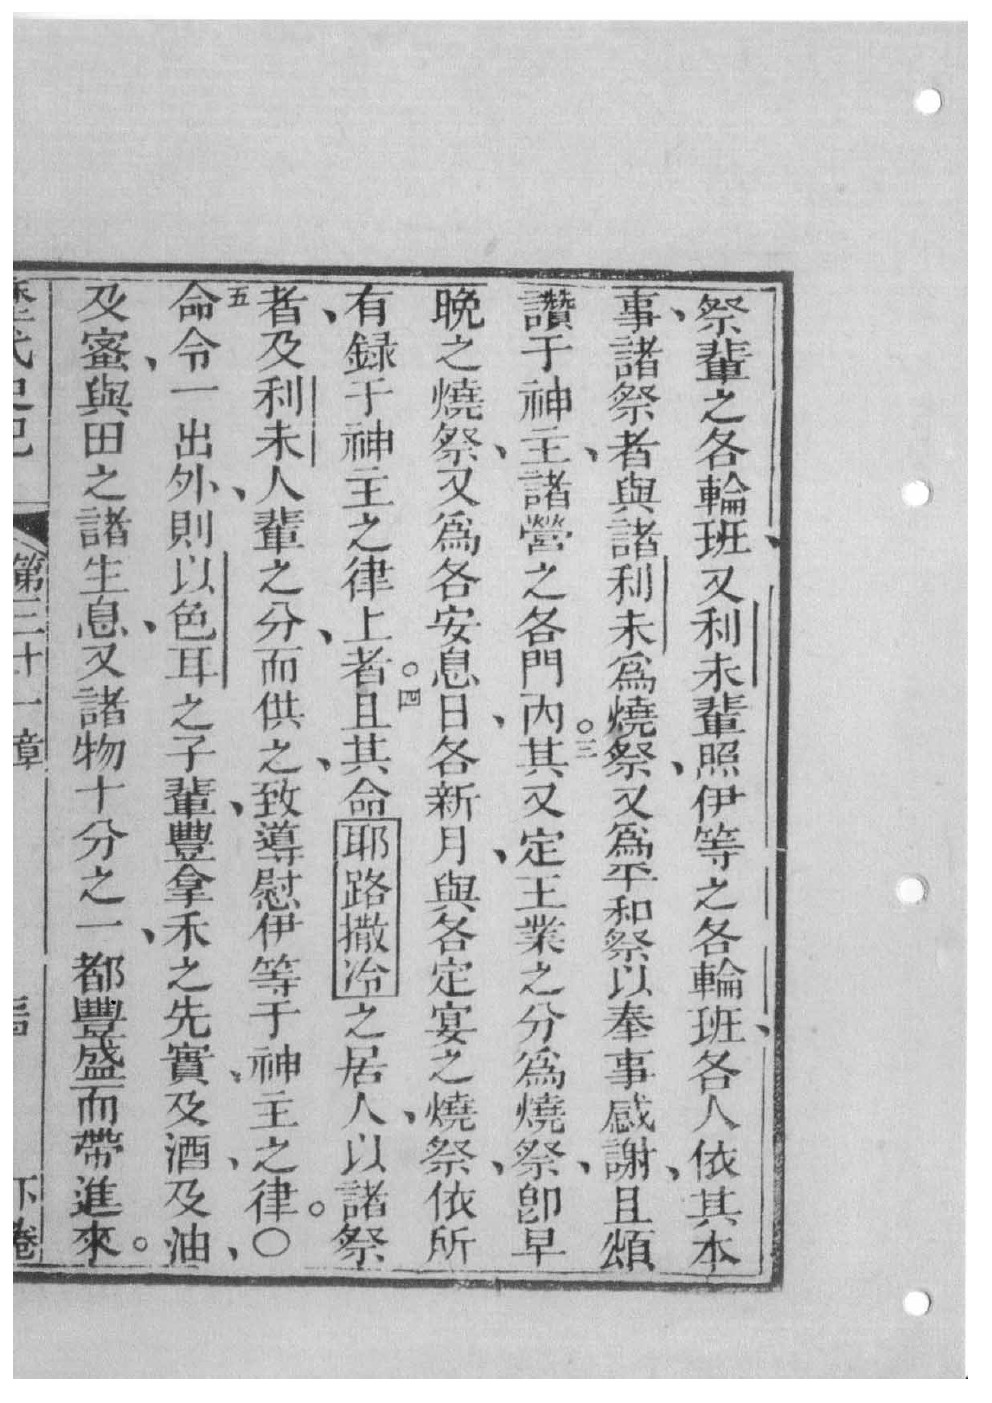 祭輩之各輪班、又利未輩照伊等之各輪班、各人依其本
事、諸祭者與諸利未爲燒祭、又爲平和祭以奉事感謝、且頌
讚于神主、諸營之各門內。三其又定王業之分爲燒祭、卽早
晚之燒祭、又爲各安息日、各新月、與各定宴之燒祭、依所
有録于神主之律上者。四且其命耶路撒冷之居人、以諸祭
者、及利未人輩之分、而供之、致導慰伊等于神主之律。〇
五命令一出外、則以色耳之子輩、豐拿禾之先實、及酒、及油、
及蜜、與田之諸生息、又諸物十分之一、都豐盛而帶進來。
歷代史記 第三十一章 下卷